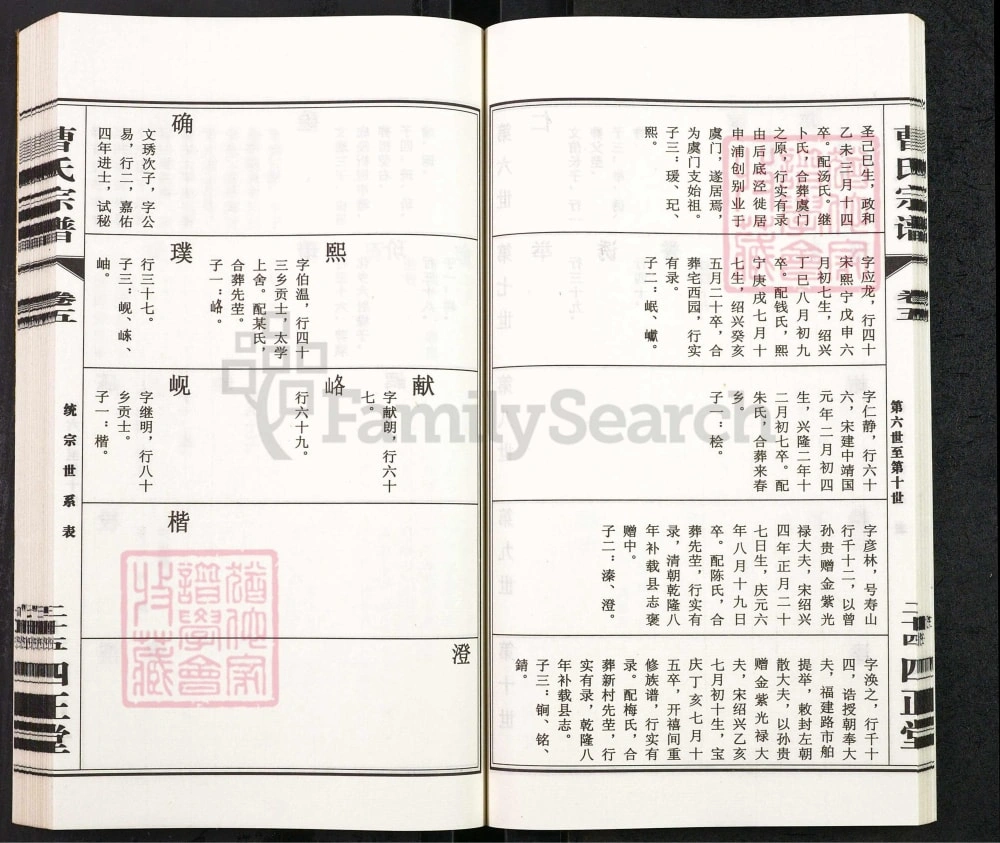 曹氏宗谱
卷五
第六世至第十世
二十四
四正堂
圣己巳生，政和
乙未三月十四
卒。配汤氏。继
卜氏，合葬虞门
之原，行实有录
由后底泾徙居
申浦创别业于
虞门，遂居焉，
为虞门支始祖。
子三：瑗、玘、
熙。
字应龙，行四十
宋熙宁戊申六
月初七生，绍兴
丁巳八月初九
卒。配钱氏，熙
宁庚戌七月十
七生，绍兴癸亥
五月二十卒，合
葬宅西园，行实
有录。
子二：岷、巘。
字仁静，行六十
六，宋建中靖国
元年二月初四
生，兴隆二年十
二月初七卒。配
朱氏，合葬来春
乡。
子一：桧。
字彦林，号寿山
行千十二，以曾
孙贵赠金紫光
禄大夫，宋绍兴
四年正月二十
七日生，庆元六
年八月十九日
卒。配陈氏，合
葬先茔，行实有
录，清朝乾隆八
年补载县志褒
赠中。
子二：溱、澄。
字涣之，行千十
四，诰授朝奉大
夫，福建路市舶
提举，敕封左朝
散大夫，以孙贵
赠金紫光禄大
夫，宋绍兴乙亥
七月初十生，宝
庆丁亥七月十
五卒，开禧间重
修族谱，行实有
录。配梅氏，合
葬新村先茔，行
实有录，乾隆八
年补载县志。
子三：锏、铭、
錆。
确
文琇次子，字公
易，行二，嘉佑
四年进士，试秘
熙
字伯温，行四十
三乡贡士，太学
上舍。配某氏，
合葬先茔。
子一：峈。
璞
行三十七。
子三：岘、崃、
岫。
献
字献朗，行六十
七。
峈
行六十九。
岘
字继明，行八十
乡贡士。
子一：楷。
楷
澄
曹氏宗谱
卷五
统宗世系表
二十五
四正堂
FamilySearch